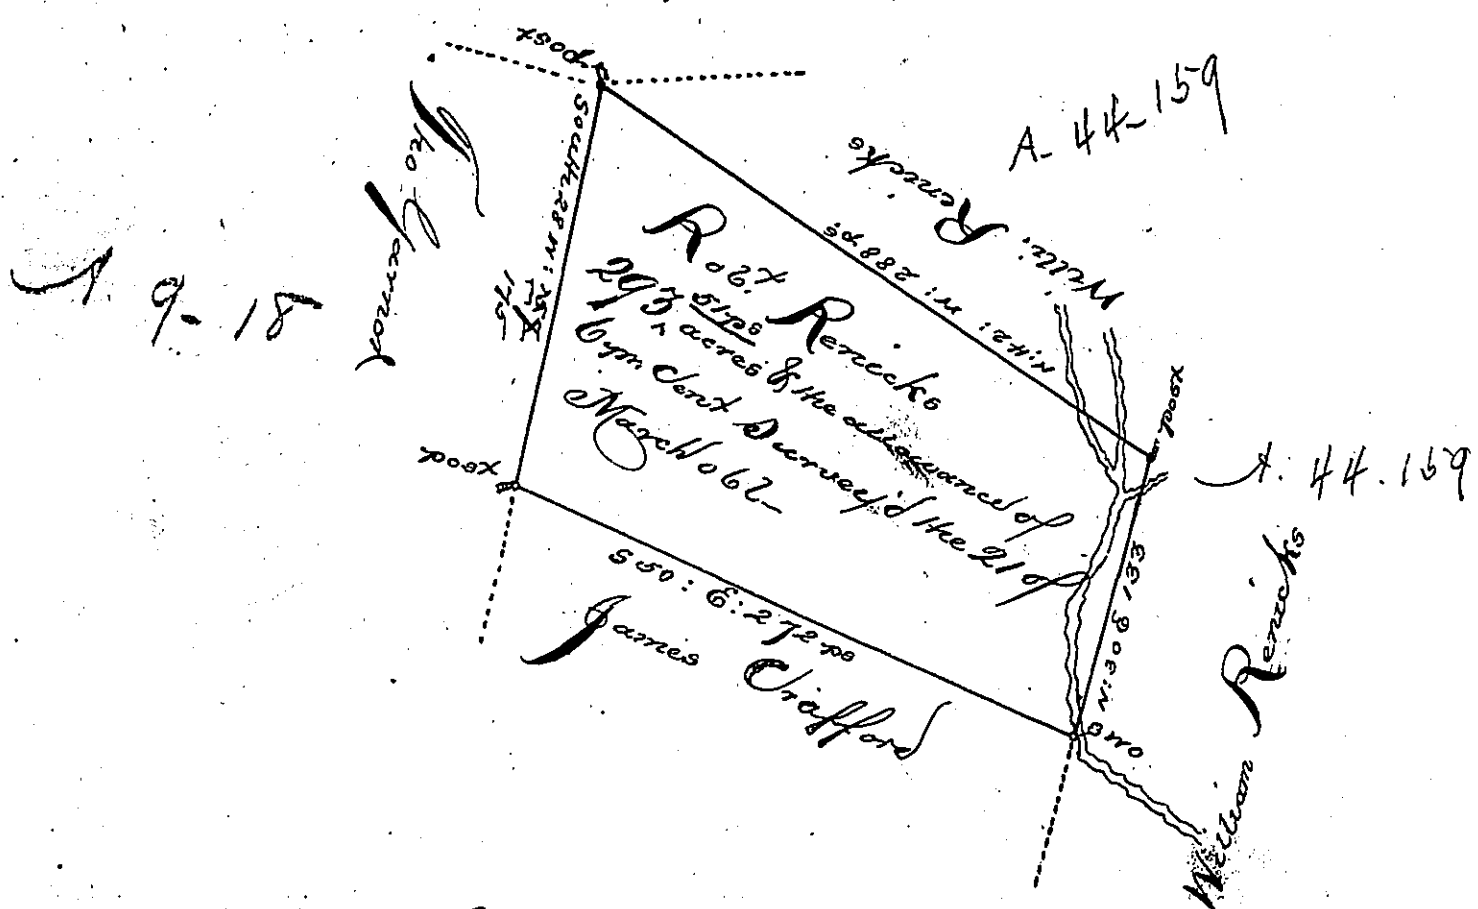 post
A. 44-159
Willi: Renicks
N:42: W: 288 ps
South 28 W:
175
A. 9-18
Robt Renicks
293 acres & the allowance of
51 ps
6 pr Cent Survey'd the 21 of
March 1762
post
post
A. 44.159
N:30 E 133
S 50: E: 272 ps
James Crafford
BWO
William Renicks